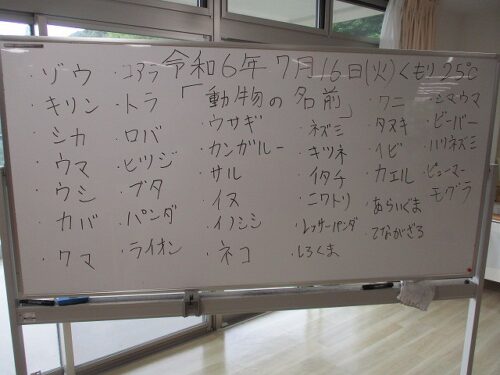 令和6年 7月16日(火)くもり25℃
「動物の名前」
・ゾウ
・キリン
・シカ
・ウマ
・ウシ
・カバ
・クマ
・コアラ
・トラ
・ロバ
・ヒツジ
・ブタ
・パンダ
・ライオン
・ウサギ
・カンガルー
・サル
・イヌ
・イノシシ
・ネコ
・ネズミ
・キツネ
・イタチ
・ニワトリ
・レッサーパンダ
・しろくま
・ワニ
・タヌキ
・カエル
・あらいぐま
・てながざる
・シマウマ
・ビーバー
・ハリネズミ
・ピューマー
モグラ